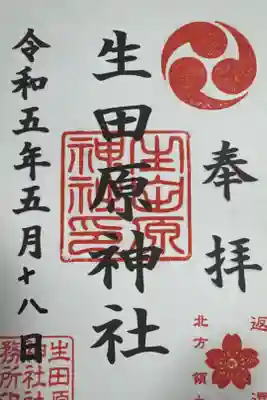 奉拝
生田原神社
生田原神社印
令和五年五月十八日
北方領
生田原
神社社
務所印